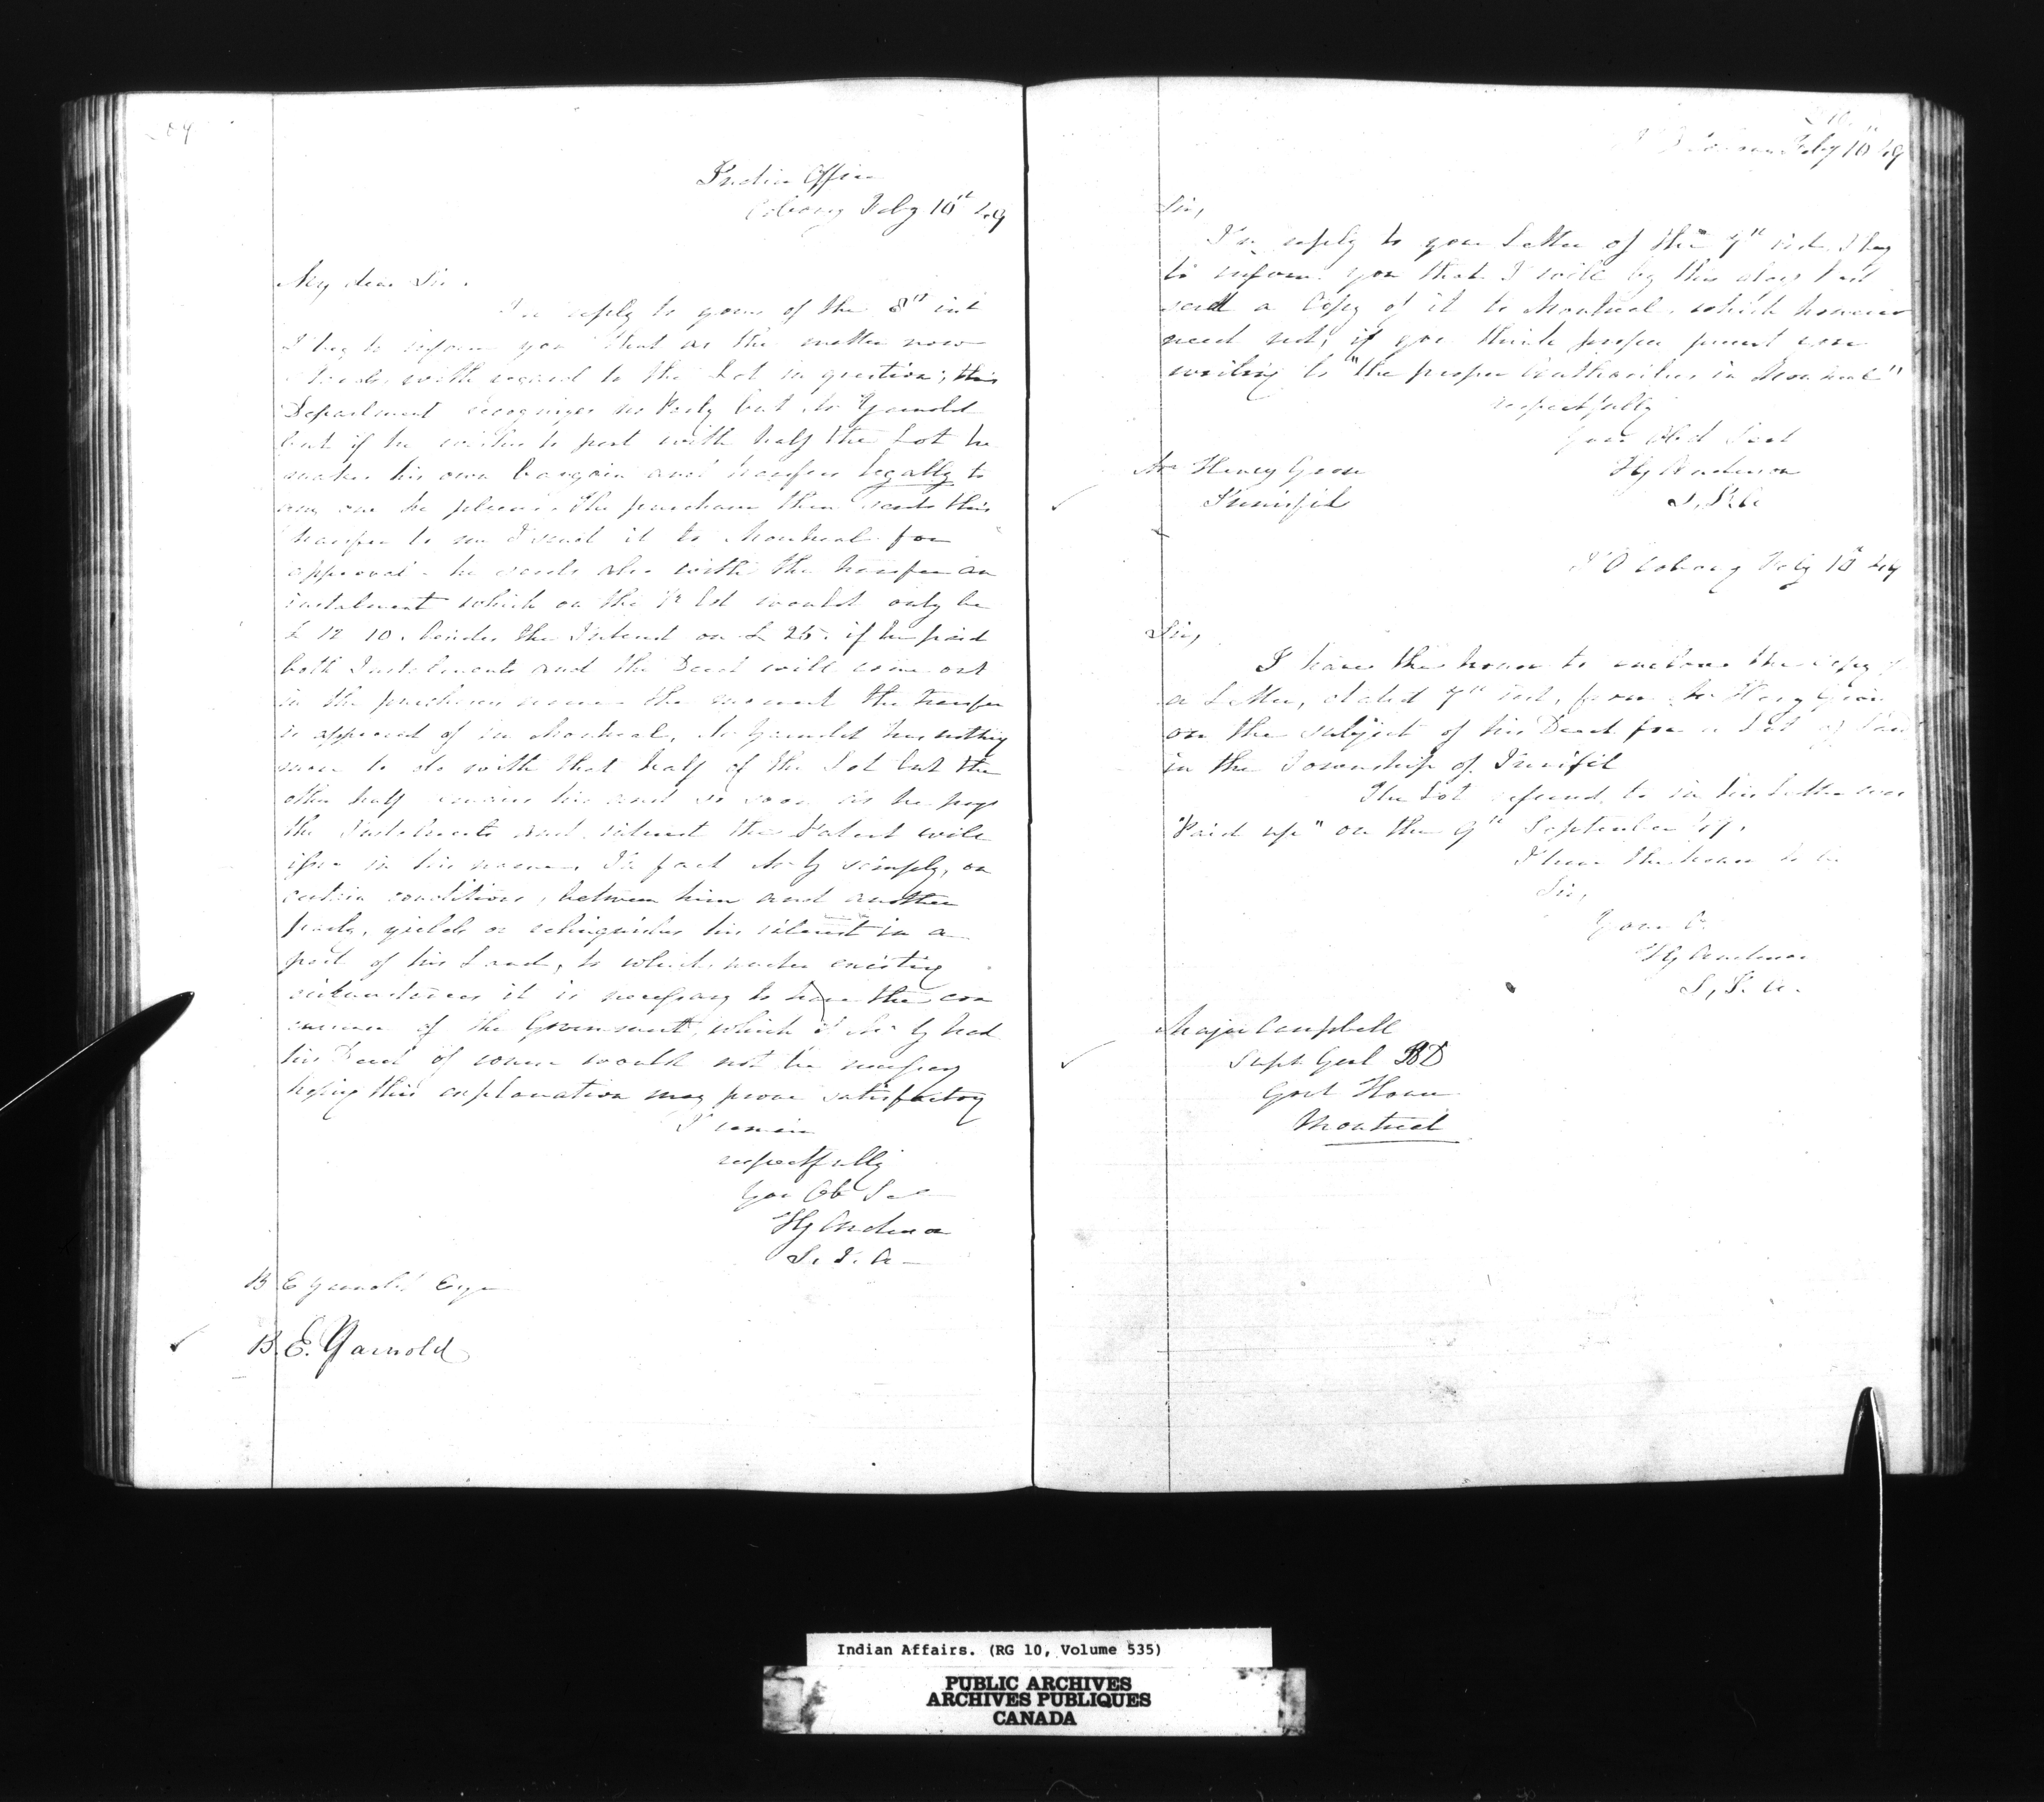 Indian Office
Cobourg Feby 10th 49
My dear Sir.
In reply to yours of the 8th inst
I beg to inform you that as the matter now
stands with regard to the Lot in question, this
Department recognizes no Party but Mr Yarnold
but if he wishes to part with half the Lot he
makes his own bargain and transfers legally to
any one he pleases. The purchaser then sends this
transfer to me I send it to Montreal for
approval - he sends also with the transfer an
instalment which on the ½ Lot would only be
£ 12 10. besides the Interest on £ 25. if he paid
both Instalments and the Deed will come out
in the purchasers name the moment the transfer
is approved of in Montreal, Mr Yarnold has nothing
more to do with that half of the Lot but the
other half remains his and so soon as he pays
the Instalments and interest the Patent will
issue in his name. In fact Mr Y simply, on
certain conditions, between him and another
party, yields or relinquishes his interest in a
part of his Land, to which under existing
circumstances it is necessary to have the con
currence of the Government, which if Mr Y had
his Deed of course would not be necessary
hoping this explanation may prove satisfactory
I remain
respectfully
Your Ob Ser
TG Anderson
S. I. A
B E Yarnold Esqr
B. E. Yarnold
Feby 10th 49
Sir,
In reply to your Letter of the 7th inst. I beg
to inform you that I will by this days Post
send a Copy of it to Montreal, which however
need not, if you think proper prevent your
writing to "the proper Authorities in Montreal"
respectfully
Your Obed Servt
TG Anderson
S. I. A
Mr Henry Grose
Innisfil
I O Cobourg Feby 10th 49
Sir,
I have the honor to enclose the copy of
a Letter, dated 7th inst, from Mr Henry Grose
on the subject of his Deed for a Lot of Land
in the Township of Innisfil
The Lot referred to in his Letter was
"Paid up" on the 9th September 47.
I have the honor to be
Sir,
Your O.
TG Anderson
S, I. A.
Major Campbell
Supt Genl
Govt House
Montreal
Indian Affairs. (RG 10, Volume 535)
PUBLIC ARCHIVES
ARCHIVES PUBLIQUES
CANADA